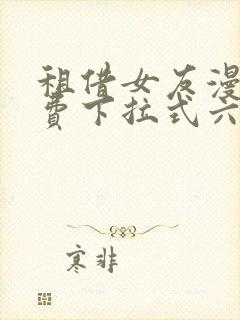 租借女友漫
费下拉式六
寒非